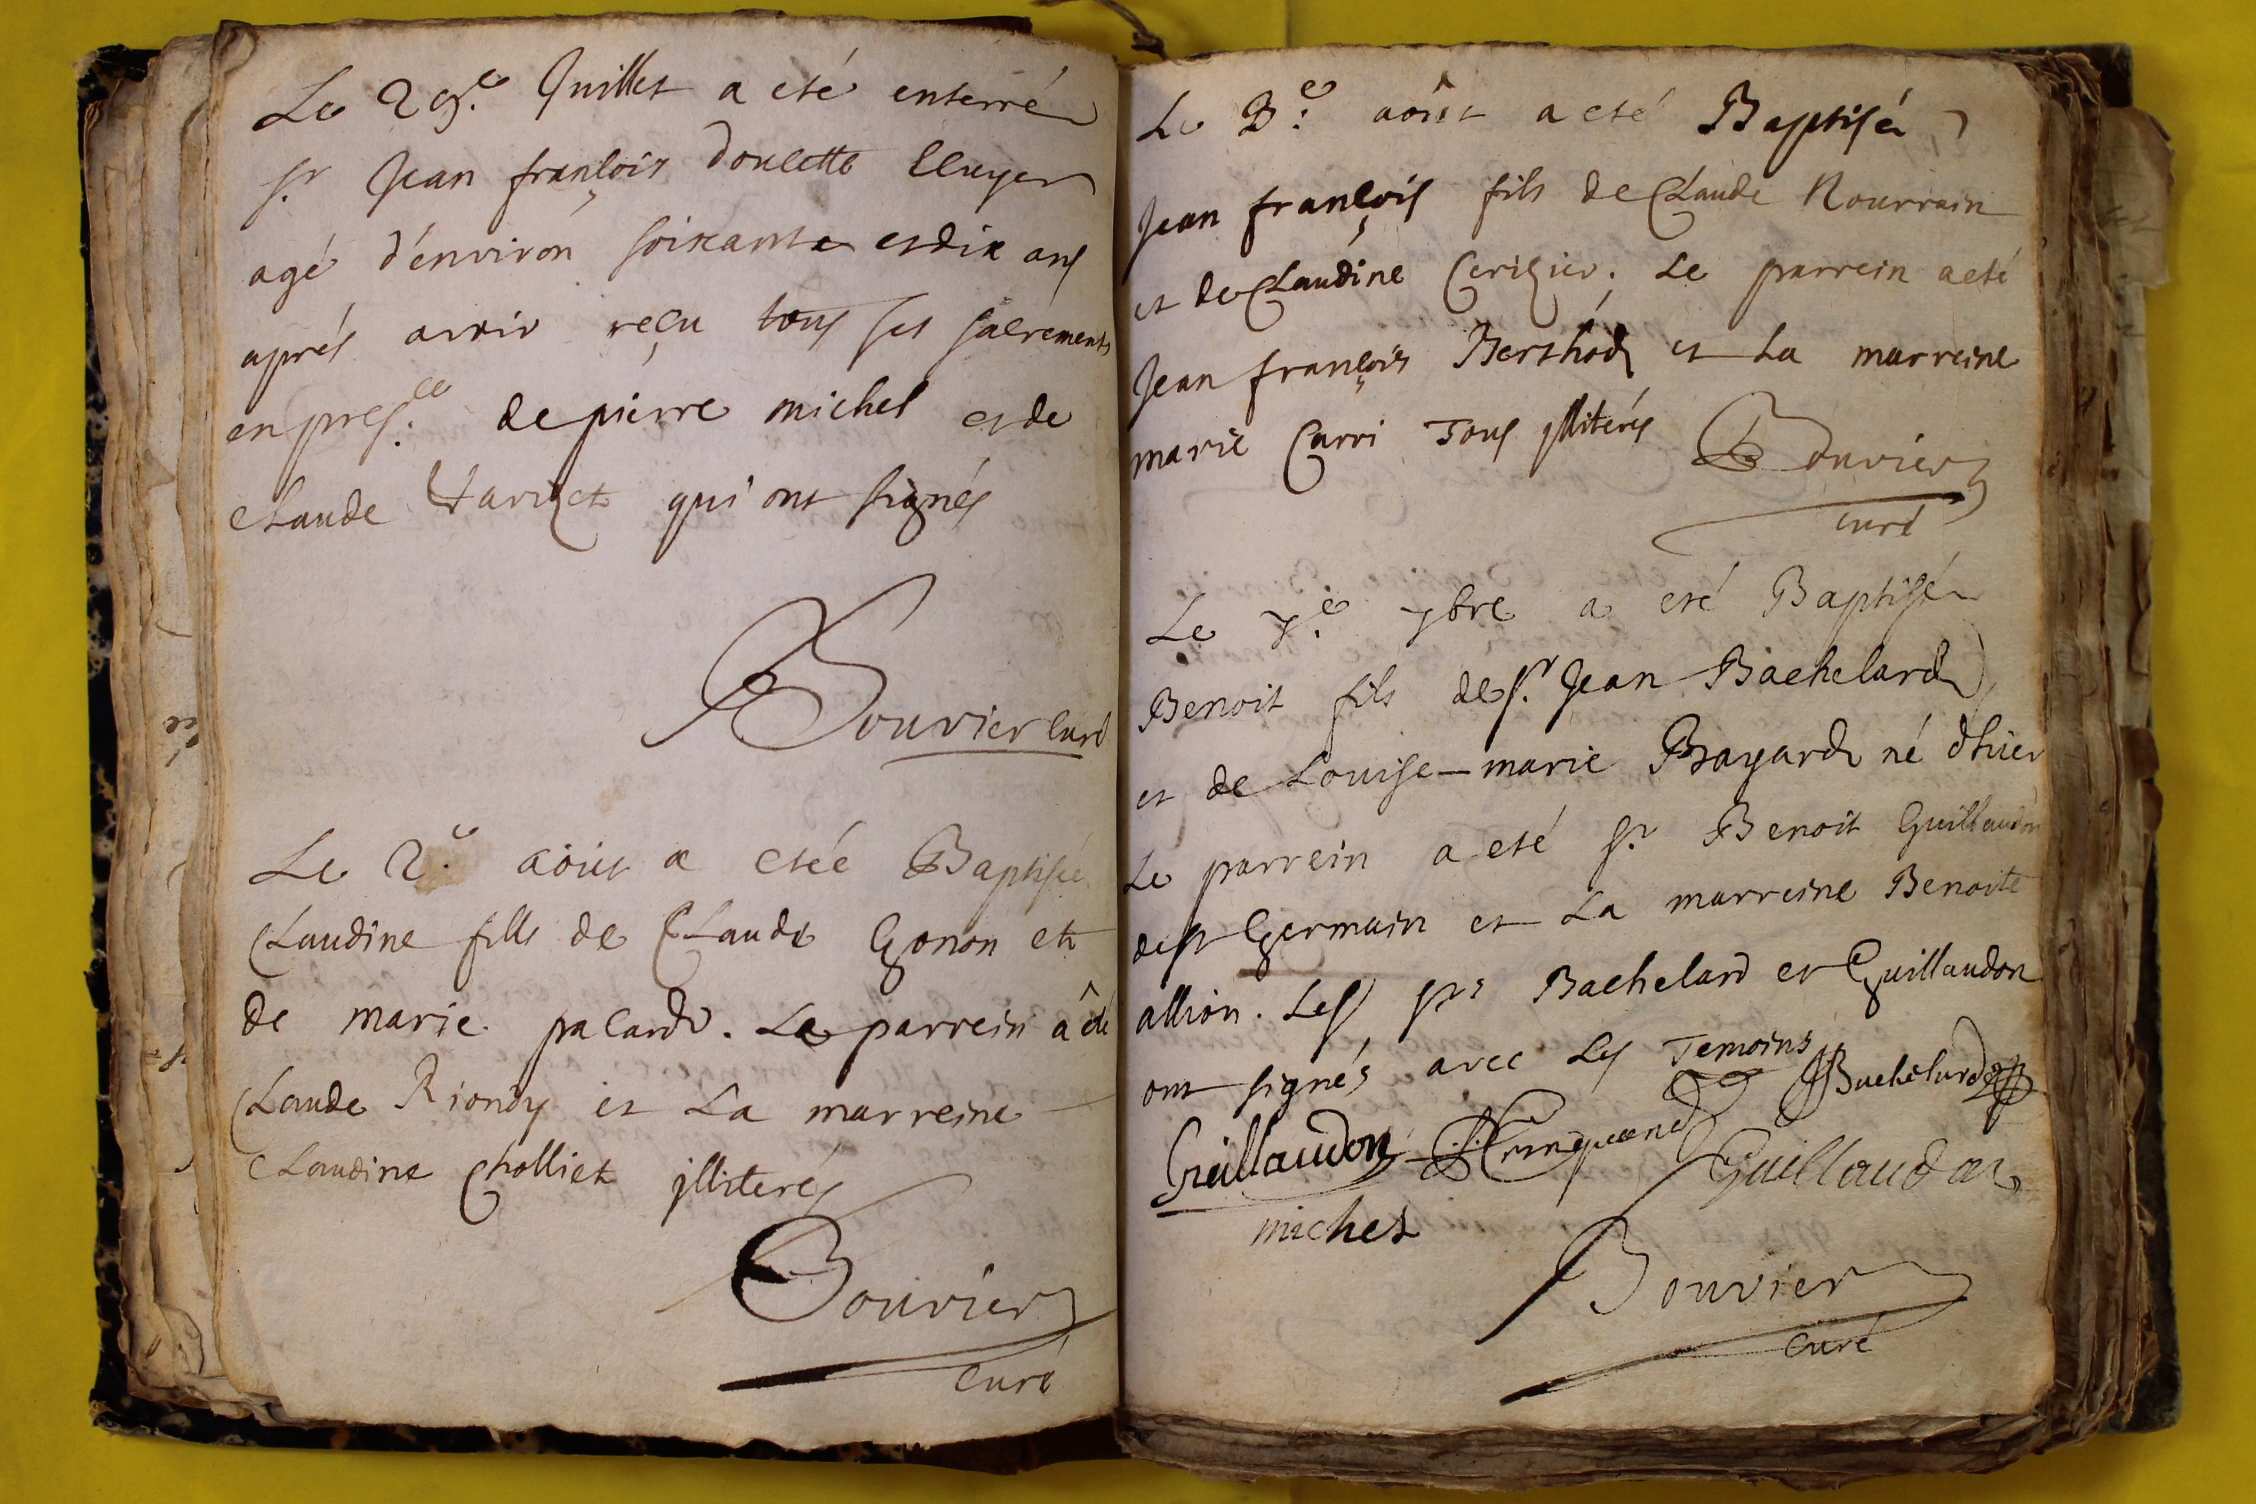 Le 29.e Juillet a eté enterré
Sr. Jean françois Doulette Ecuyer
agé d'environ soixante et dix ans
aprés avoir reçu tous ses sacrements
en pres.ce de pierre michel et de
claude Varizet qui ont signés
Bouvier curé
Le 2.e août a etée Baptisée
Claudine fille de Claude Gonon et
de marie palardr. Le parrein â été
Claude Riondy et La marreine
claudine Cholliet jlliterés
Bouvier
curé
Le 3.e août a eté Baptisé
Jean françois fils de Claude Nourrain
et de Claudine Cerizier. Le parrein a eté
Jean françois Berthod et La marreine
marie Carri Tous jlliterés Bouvier
curé
Le 7.e 7bre a eté Baptisé
Benoit fils de Sr. Jean Bachelard
et de Louise-marie Bayard né d'hier
Le parrein a eté Sr. Benoit Guillaudon
de St Germain et La marreine Benoite
allion. Les Srs Bachelard et Guillaudon
ont signés avec Les Temoins Bachelard
Guillaudon
Guillaudon
michel
Bouvier
curé